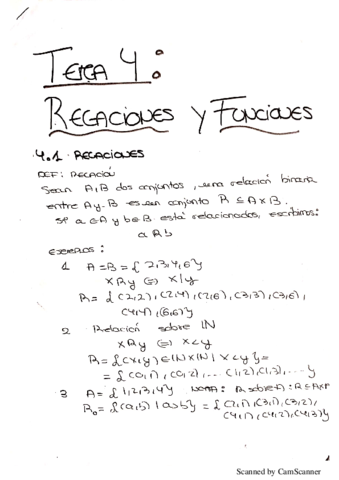 Tema 4:
Relaciones y Funciones
4.1 Relaciones
DEF: Relación
Sean A, B dos conjuntos, una relación binaria
entre A y B es un conjunto R ⊆ A x B.
Si a ∈ A y b ∈ B está relacionados, escribimos:
a R b
Ejemplos:
1 A = B = { 2,3,4,6 }
x R y ⇔ x | y
R = { (2,2), (2,4), (2,6), (3,3), (3,6),
(4,4), (6,6) }
2 Relación sobre ℕ
x R y ⇔ x < y
R = { (x,y) ∈ ℕ x ℕ | x < y } =
= { (0,1), (0,2), ... (1,2), (1,3), ... }
3 A = { 1,2,3,4 } NOTA: R sobre A: R ⊆ A x A
= { (2,1), (3,1), (3,2),
(4,1), (4,2), (4,3) }
1
Scanned by CamScanner